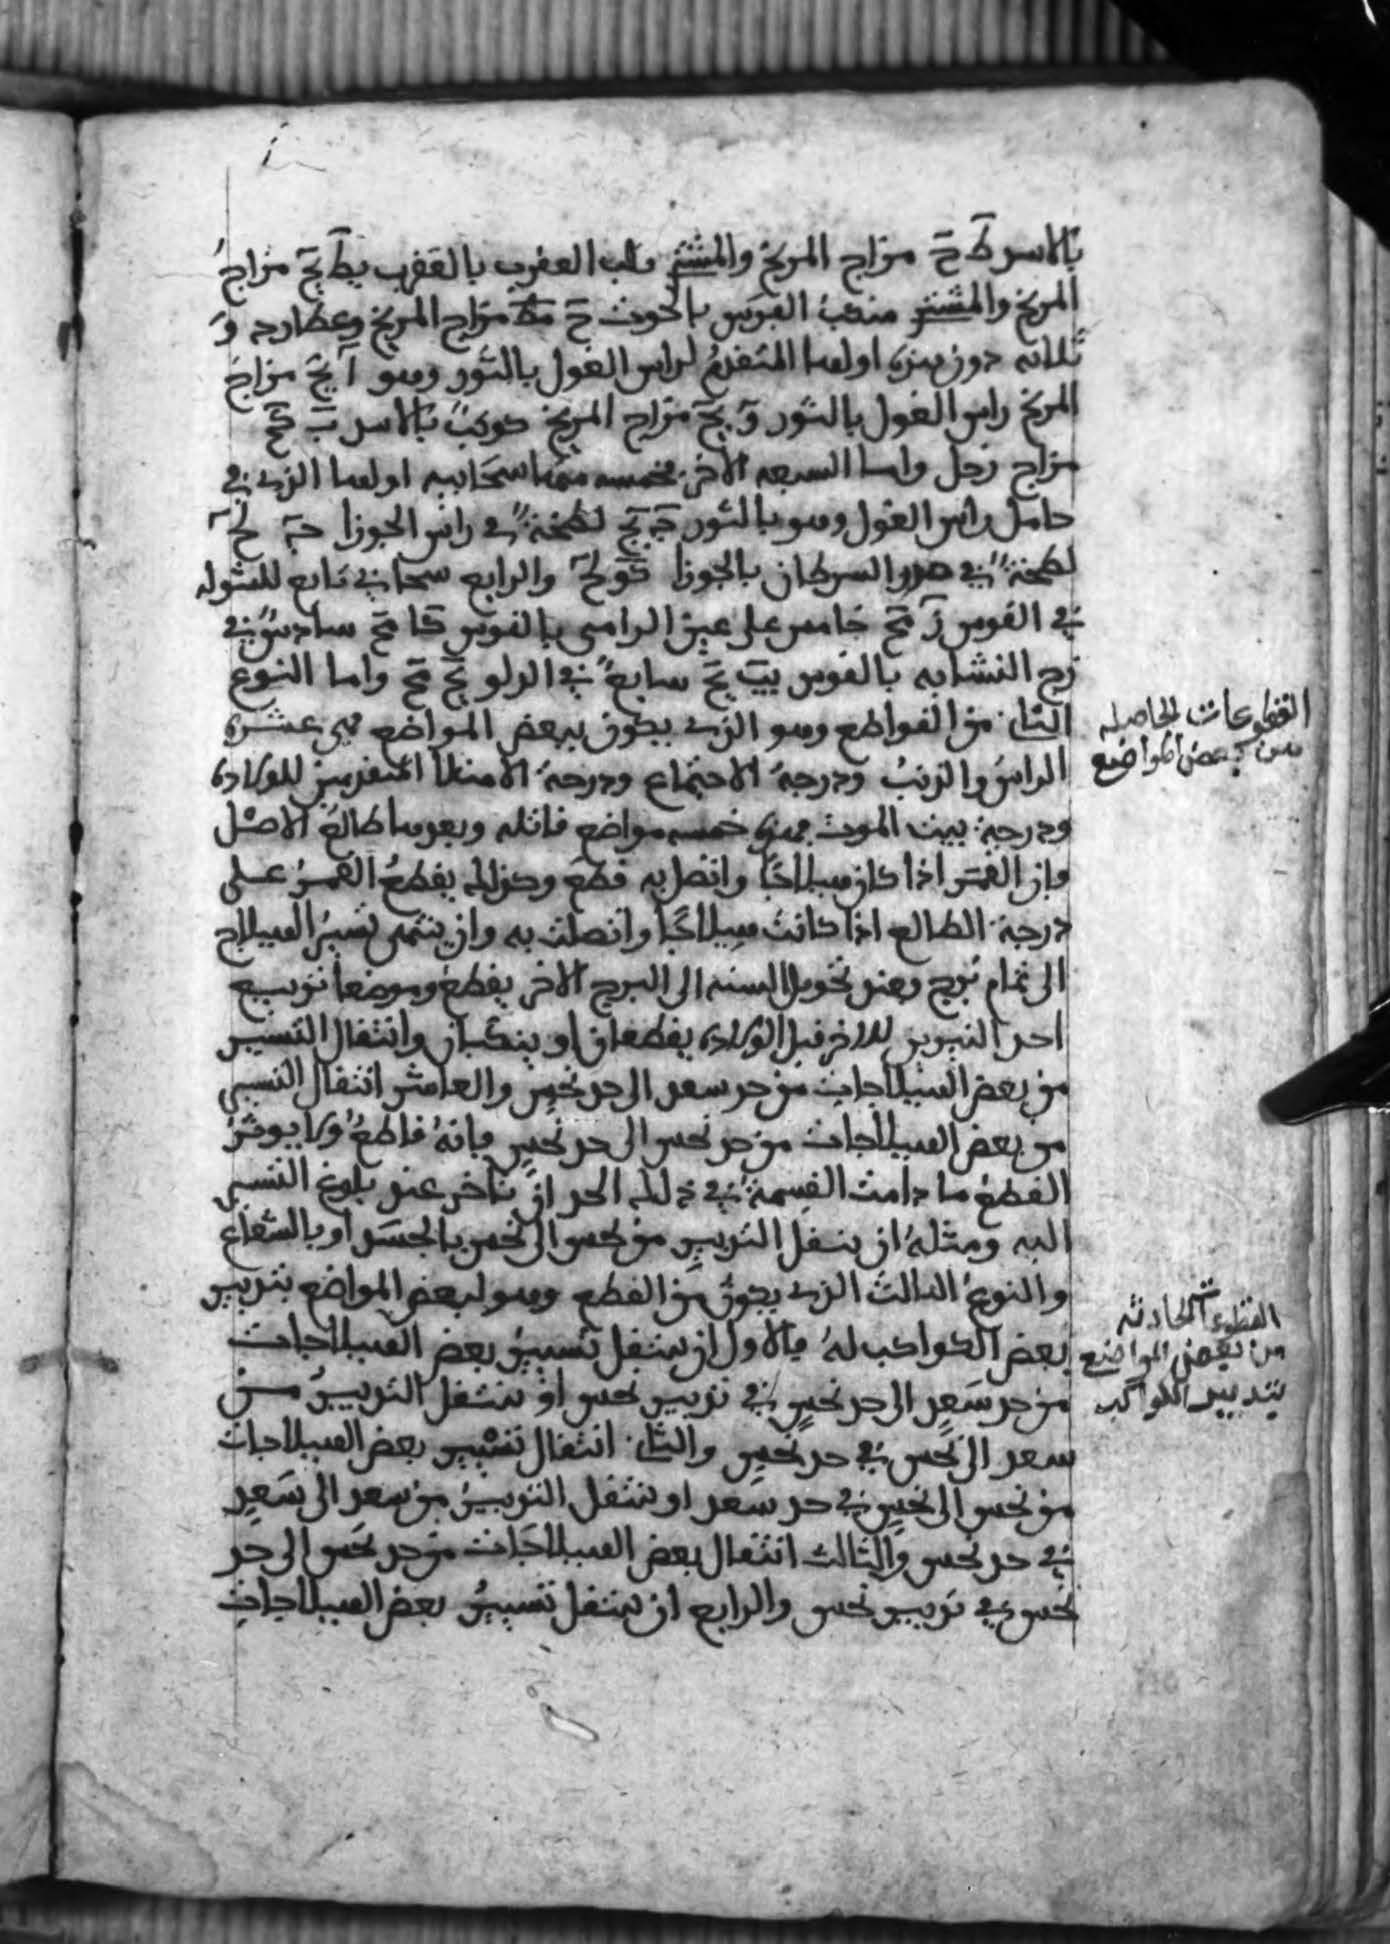 بالاسد ط ح مزاج المريخ والمشتر قلب العقرب بالعقرب يط يح مزاج
المريخ والمشتر منكب القوس بالحوت ح مزاج المريخ وعطارد و
ثلاثه دون هذه اولها المتقدم لراس الغول بالثور وهو ا يح مزاج
المريخ راس الغول بالثور و يح مزاج المريخ كوكب بالاسد
مزاج زحل واما السبعه الاخر فخمسه منها سحابيه اولها الذى في
حامل راس الغول وهو بالثور لطخة في راس الجوزا
لطخة في صدر السرطان بالجوزا والرابع سحابي تابع للشوله
في القوس خامس على عين الرامى بالقوس سادس في
زج النشابه بالقوس سابع في الدلو واما النوع
الثان من القواطع وهو الذى يكون ببعض المواضع فهي عشره
الراس والذنب ودرجة الاجتماع ودرجة الامتلا المتقدمين للولاده
ودرجة بيت الموت فهذه خمسه مواضع قاتله وبعدها طالع الاصل
وان القمر اذا كان هيلاجا واتصل به قطع وكذلك يقطع القمر على
درجة الطالع اذا كانت هيلاجا واتصلت به وان ينتهى تسير الهيلاج
الى تمام برج وعند تحويل السنه الى البرج الاخر يقطع وموضعا تربيع
احد النيرين للاخر قبل الولاده يقطعان او ينكبان وانتقال التسيير
من بعض الهيلاجات من حد سعد الى حد نحس والعاشر انتقال التسيير
من بعض الهيلاجات من حد نحس الى حد نحس فانه قاطع ولا يوخر
القطع ما دامت القسمة في ذلك الحد ان تاخر عند بلوغ التسيير
اليه ومثله ان ينتقل التدبير من نحس الى نحس بالجسد او بالشعاع
والنوع الثالث الذى يكون من القطع وهو لبعض المواضع بتدبير
بعض الكواكب له فالاول ان ينتقل تسيير بعض الهيلاجات
من حد سعد الى حد نحس في تدبير نحس او ينتقل التدبير من
سعد الى نحس في حد نحس والثان انتقال تسيير بعض الهيلاجات
من نحس الى نحس في حد سعد او ينتقل التدبير من سعد الى سعد
في حد نحس والثالث انتقال بعض الهيلاجات من حد نحس الى حد
نحس في تدبير نحس والرابع ان ينتقل تسيير بعض الهيلاجات
القطوعات الحاصله
من بعض المواضع
القطوعات الحادثه
من بعض المواضع
بتدبير الكواكب